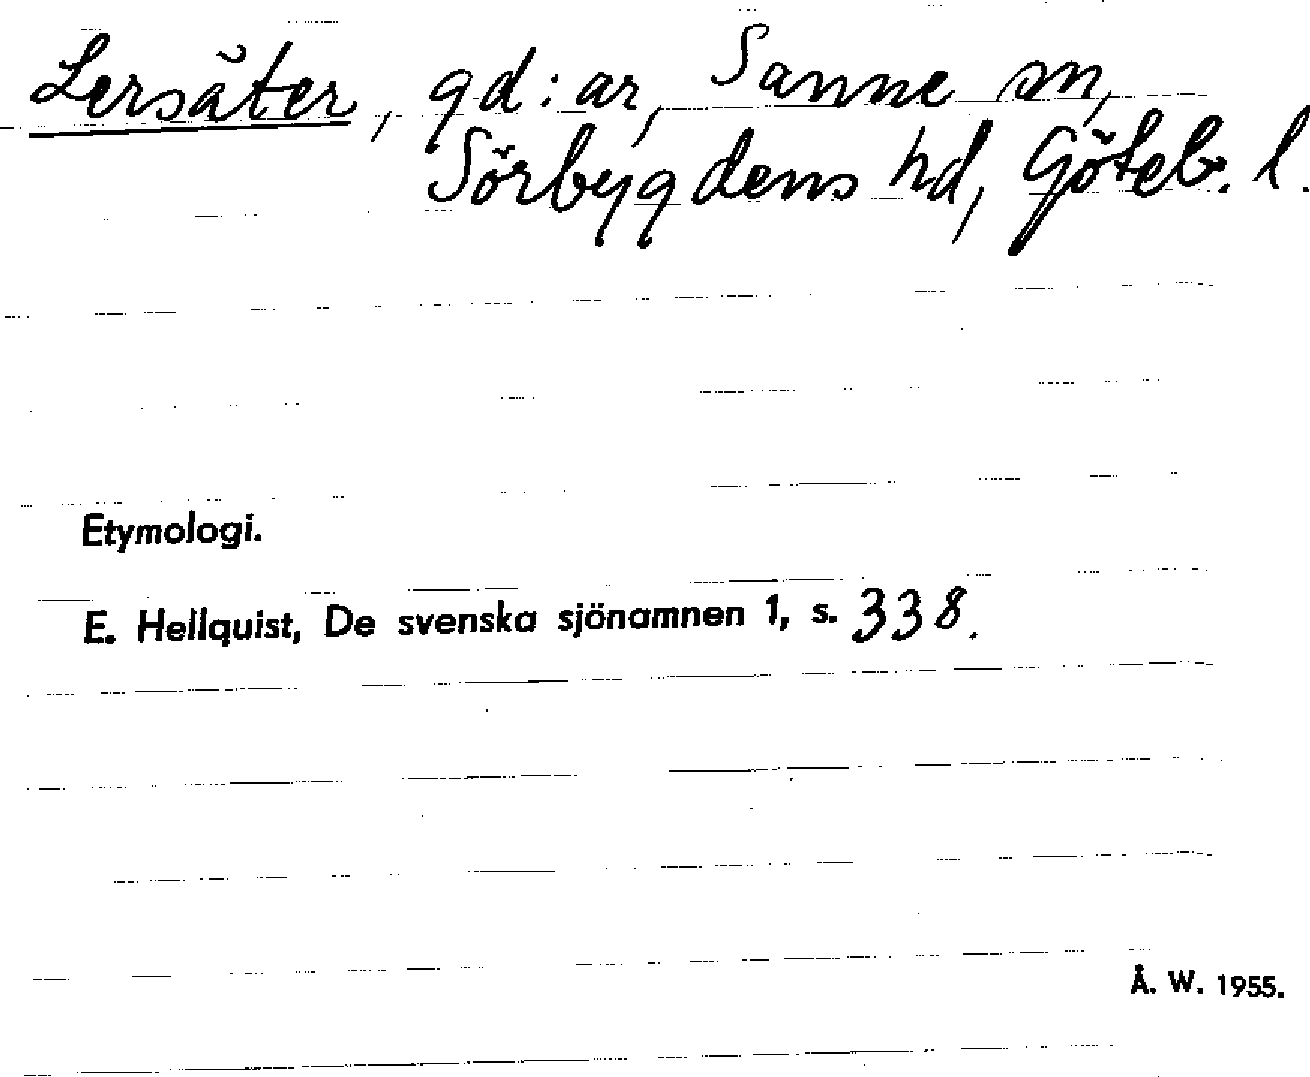 Lersäter, gd:ar, Sanne sn,
Sörbygdens hd, Göteb. l.
Etymologi.
E. Hellquist, De svenska sjönamnen 1, s. 338.
Å. W. 1955.